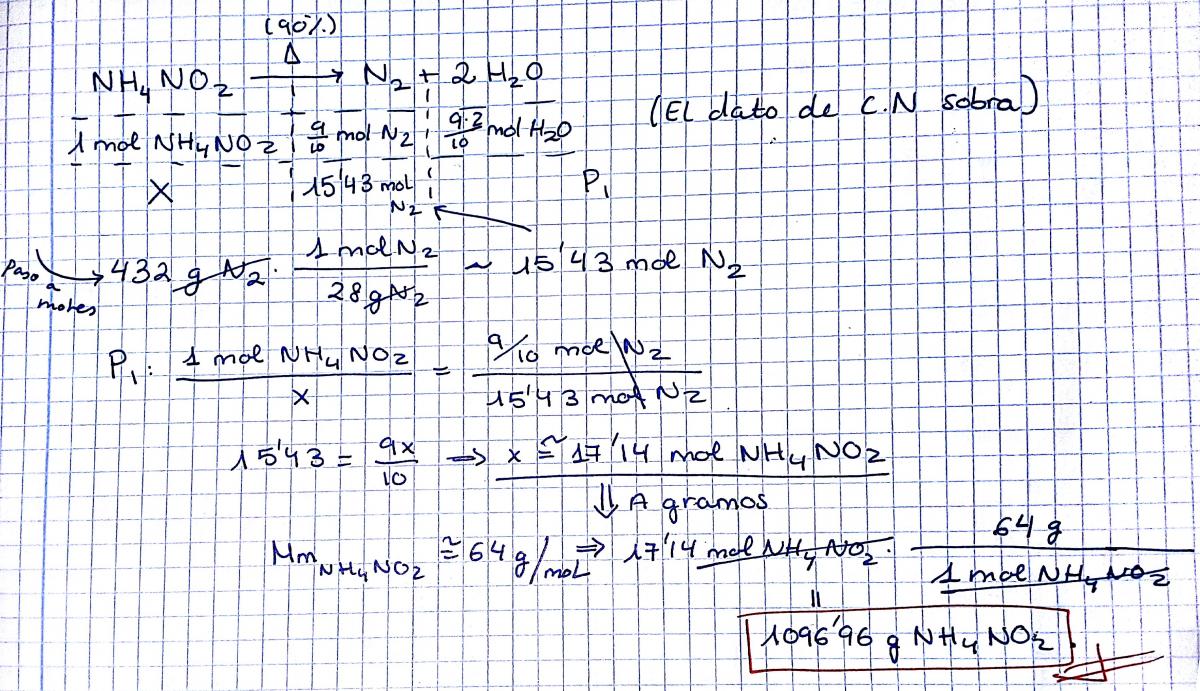 (90%)
Δ
NH₄NO₂ → N₂ + 2H₂O
(El dato de C.N sobra)
1 mol NH₄NO₂ 9/10 mol N₂ 9·2/10 mol H₂O
X 15'43 mol N₂ P₁
Paso a moles → 432 g N₂ · 1 mol N₂ / 28 g N₂ ~ 15'43 mol N₂
P₁: 1 mol NH₄NO₂ / x = 9/10 mol N₂ / 15'43 mol N₂
15'43 = 9x/10 ⇒ x ≅ 17'14 mol NH₄NO₂
⇓ A gramos
Mm NH₄NO₂ ≅ 64 g/mol ⇒ 17'14 mol NH₄NO₂ · 64 g / 1 mol NH₄NO₂
=
1096'96 g NH₄NO₂.